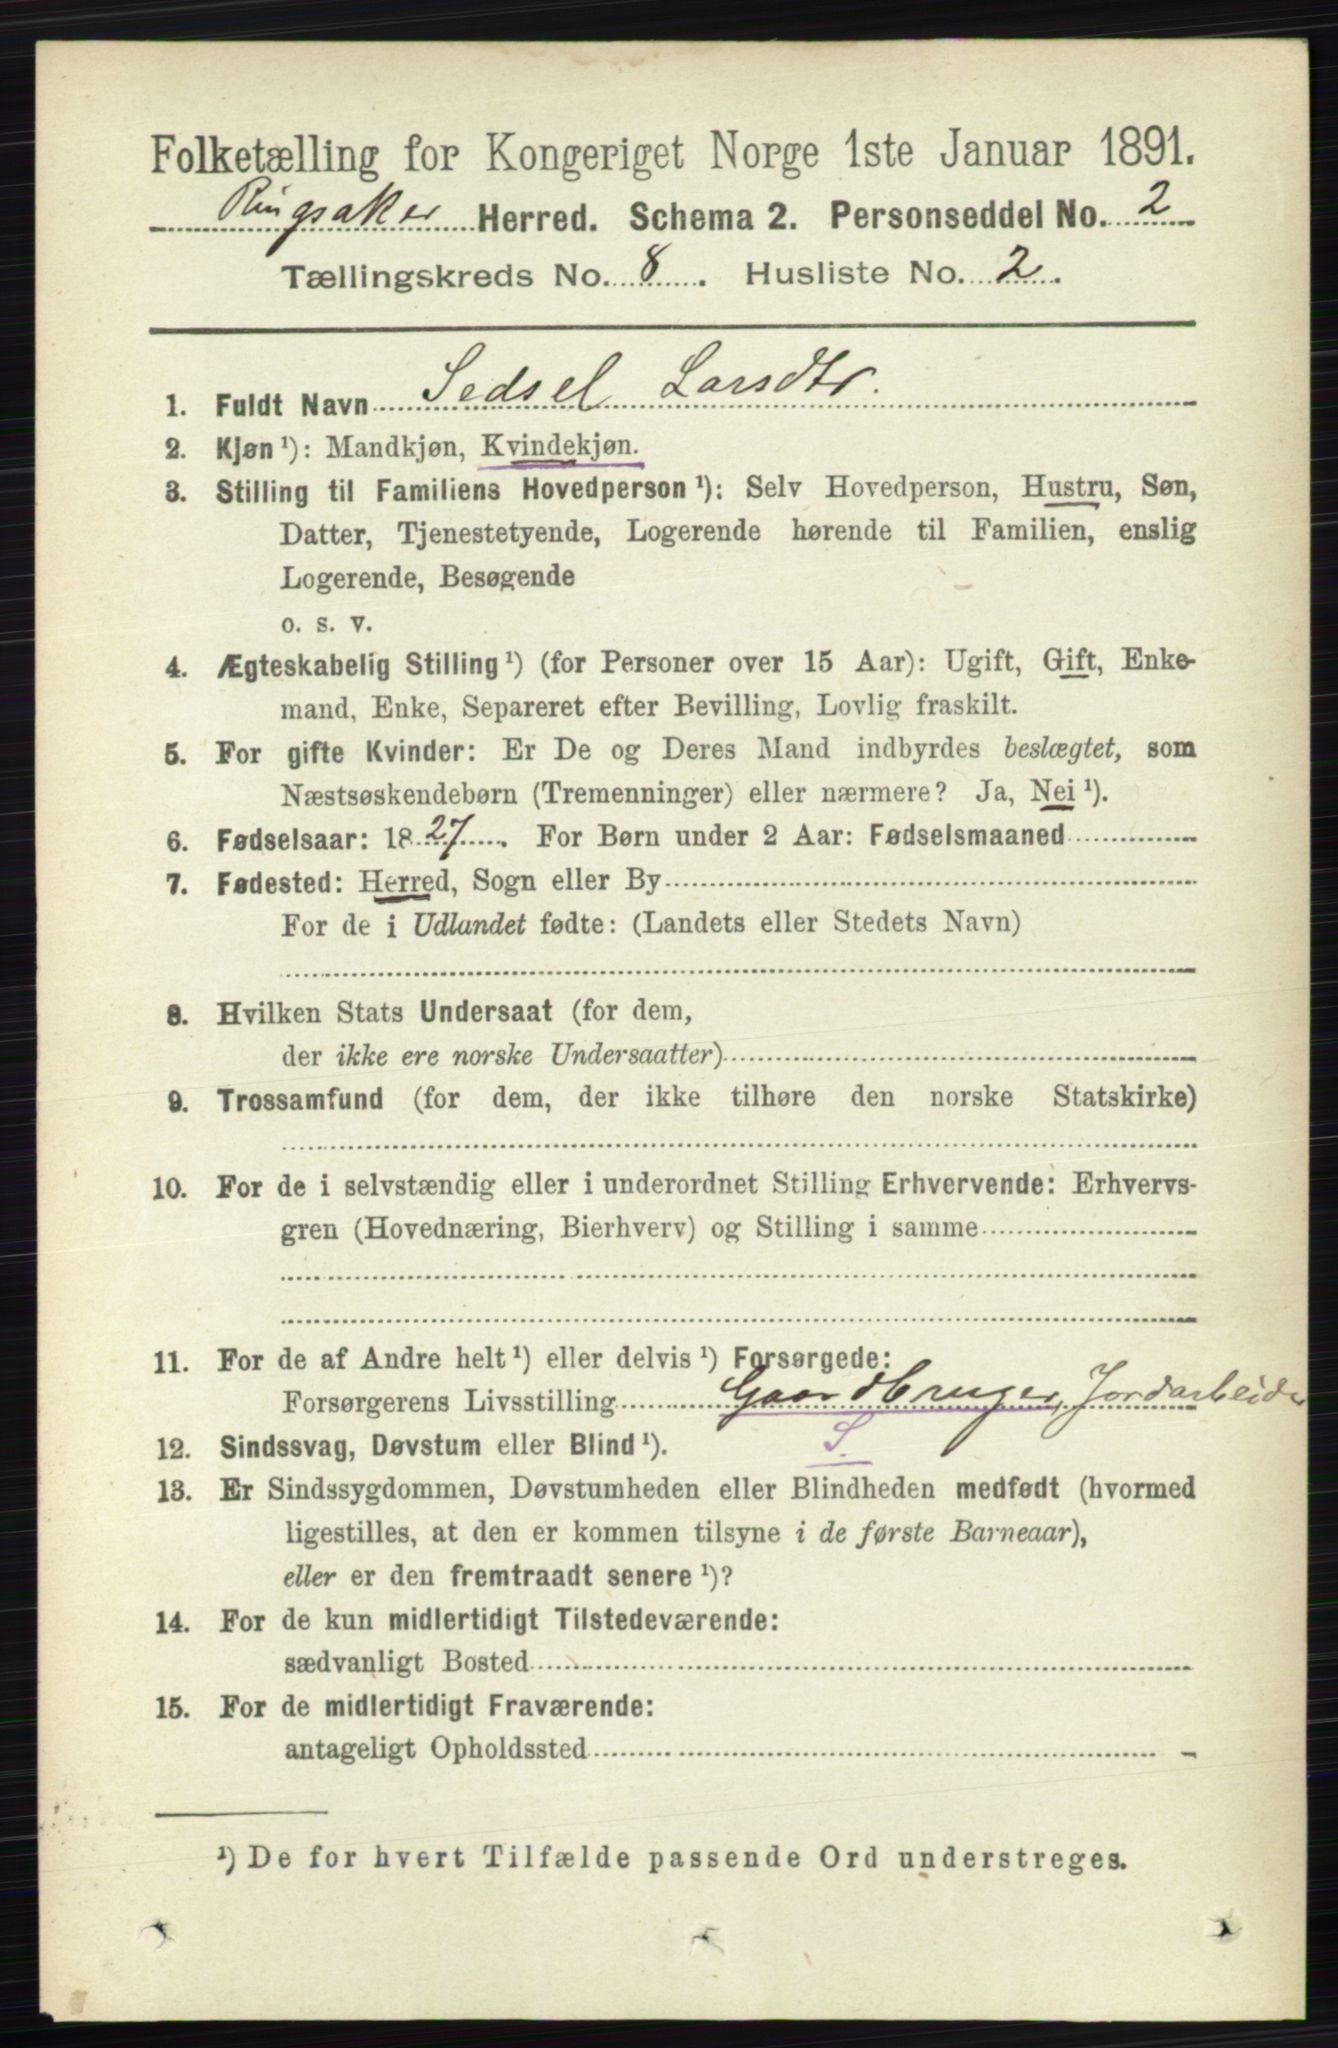 Folketælling for Kongeriget Norge 1ste Januar 1891.
Ringsaker Herred. Schema 2. Personseddel No. 2
Tællingskreds No. 8. Husliste No. 2.
1. Fuldt Navn Sedsel Larsdtr.
2. Kjøn ¹): Mandkjøn, Kvindekjøn.
3. Stilling til Familiens Hovedperson ¹): Selv Hovedperson, Hustru, Søn,
Datter, Tjenestetyende, Logerende hørende til Familien, enslig
Logerende, Besøgende
o. s. v.
4. Ægteskabelig Stilling ¹) (for Personer over 15 Aar): Ugift, Gift, Enke-
mand, Enke, Separeret efter Bevilling, Lovlig fraskilt.
5. For gifte Kvinder: Er De og Deres Mand indbyrdes beslægtet, som
Næstsøskendebørn (Tremenninger) eller nærmere? Ja, Nei ¹).
6. Fødselsaar: 1827. For Børn under 2 Aar: Fødselsmaaned
7. Fødested: Herred, Sogn eller By
For de i Udlandet fødte: (Landets eller Stedets Navn)
8. Hvilken Stats Undersaat (for dem,
der ikke ere norske Undersaatter)
9. Trossamfund (for dem, der ikke tilhøre den norske Statskirke)
10. For de i selvstændig eller i underordnet Stilling Erhvervende: Erhvervs-
gren (Hovednæring, Bierhverv) og Stilling i samme
11. For de af Andre helt ¹) eller delvis ¹) Forsørgede:
Forsørgerens Livsstilling Gaardbruger, Jordarbeider
12. Sindssvag, Døvstum eller Blind ¹). S.
13. Er Sindssygdommen, Døvstumheden eller Blindheden medfødt (hvormed
ligestilles, at den er kommen tilsyne i de første Barneaar),
eller er den fremtraadt senere ¹)?
14. For de kun midlertidigt Tilstedeværende:
sædvanligt Bosted
15. For de midlertidigt Fraværende:
antageligt Opholdssted
¹) De for hvert Tilfælde passende Ord understreges.